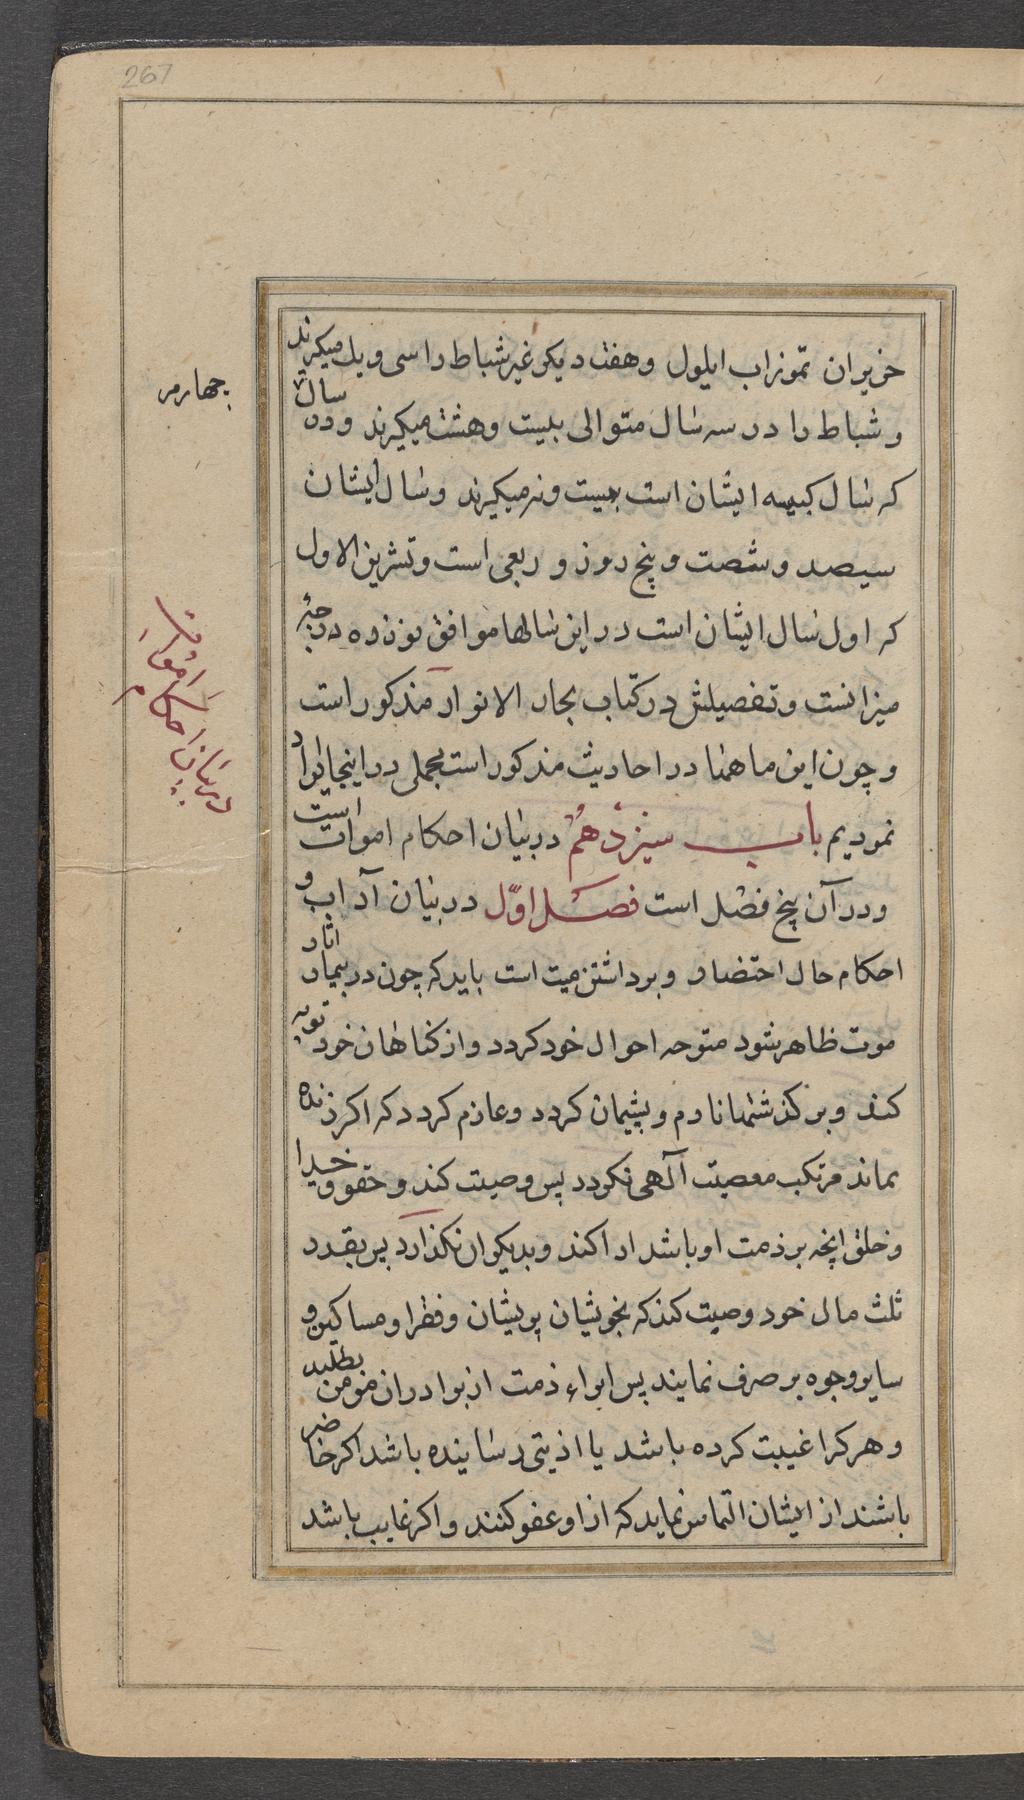 267
خریران تموز اب ایلول وهفت دیکر غیر شباط را سی ویك میکیرند
وشباط را در سه سال متوالی بیست وهشت میکیرند ودر سال
چهارمر
که سال کبیسه ایشان است بیست ونه میکیرند وسال ایشان
سیصد وشصت وپنج روز و ربعی است وتشرین الاول
که اول سال ایشان است در این سالها موافق نوزده درجهٔ
میزانست وتفصیلش در کتاب بحار الانوار مذکور است
وچون این ماهها در احادیث مذکور است مجملی در اینجا ایراد
نمودیم باب سیزدهم در بیان احکام اموات است
در بیان احکام اموات
ودر آن پنج فصل است فصل اوّل در بیان آداب و
احکام حال احتضار وبرداشتن میت است باید که چون در بیمار اثار
موت ظاهر شود متوجه احوال خود کردد واز کناهان خود توبه
کند وبر کذشتها نادم وپشیمان کردد وعازم کردد که اکر زنده
بماند مرتکب معصیت آلهی نکردد پس وصیت کند وحقوق خدا
وخلق انچه بر ذمت او باشد ادا کند وبدیکران نکذارد پس بقدر
ثلث مال خود وصیت کند که بخویشان پریشان وفقرا ومساکین و
سایر وجوه بر صرف نمایند پس ابراء ذمت از برادران مؤمن بطلبد
وهر کرا غیبت کرده باشد یا اذیتی رسانیده باشد اکر حاضر
باشند از ایشان التماس نماید که از او عفو کنند واکر غایب باشد